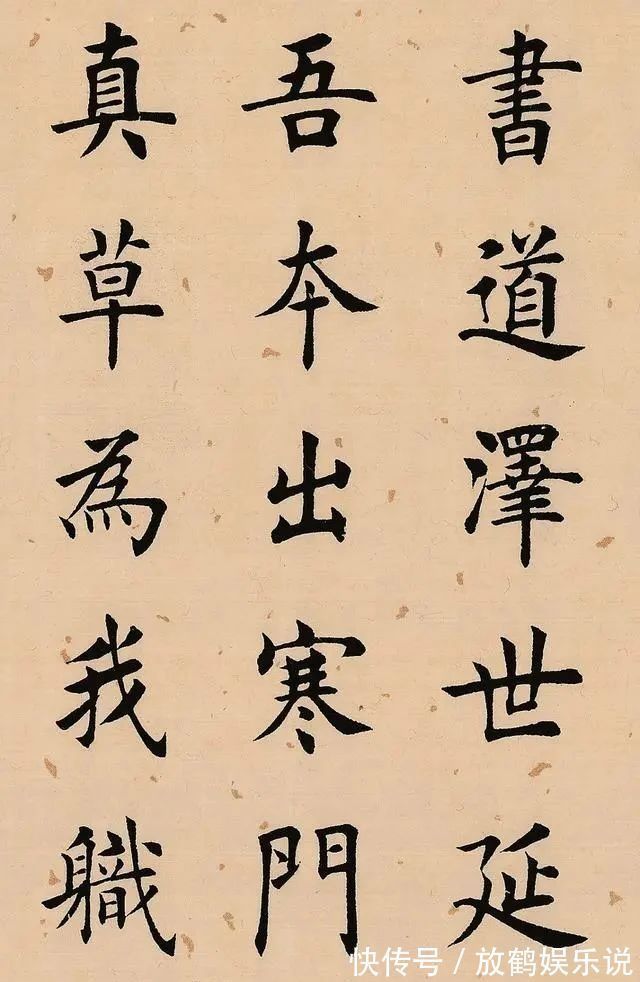 書道澤世延
吾本出寒門
真草為我職
快传号/放鹤娱乐说